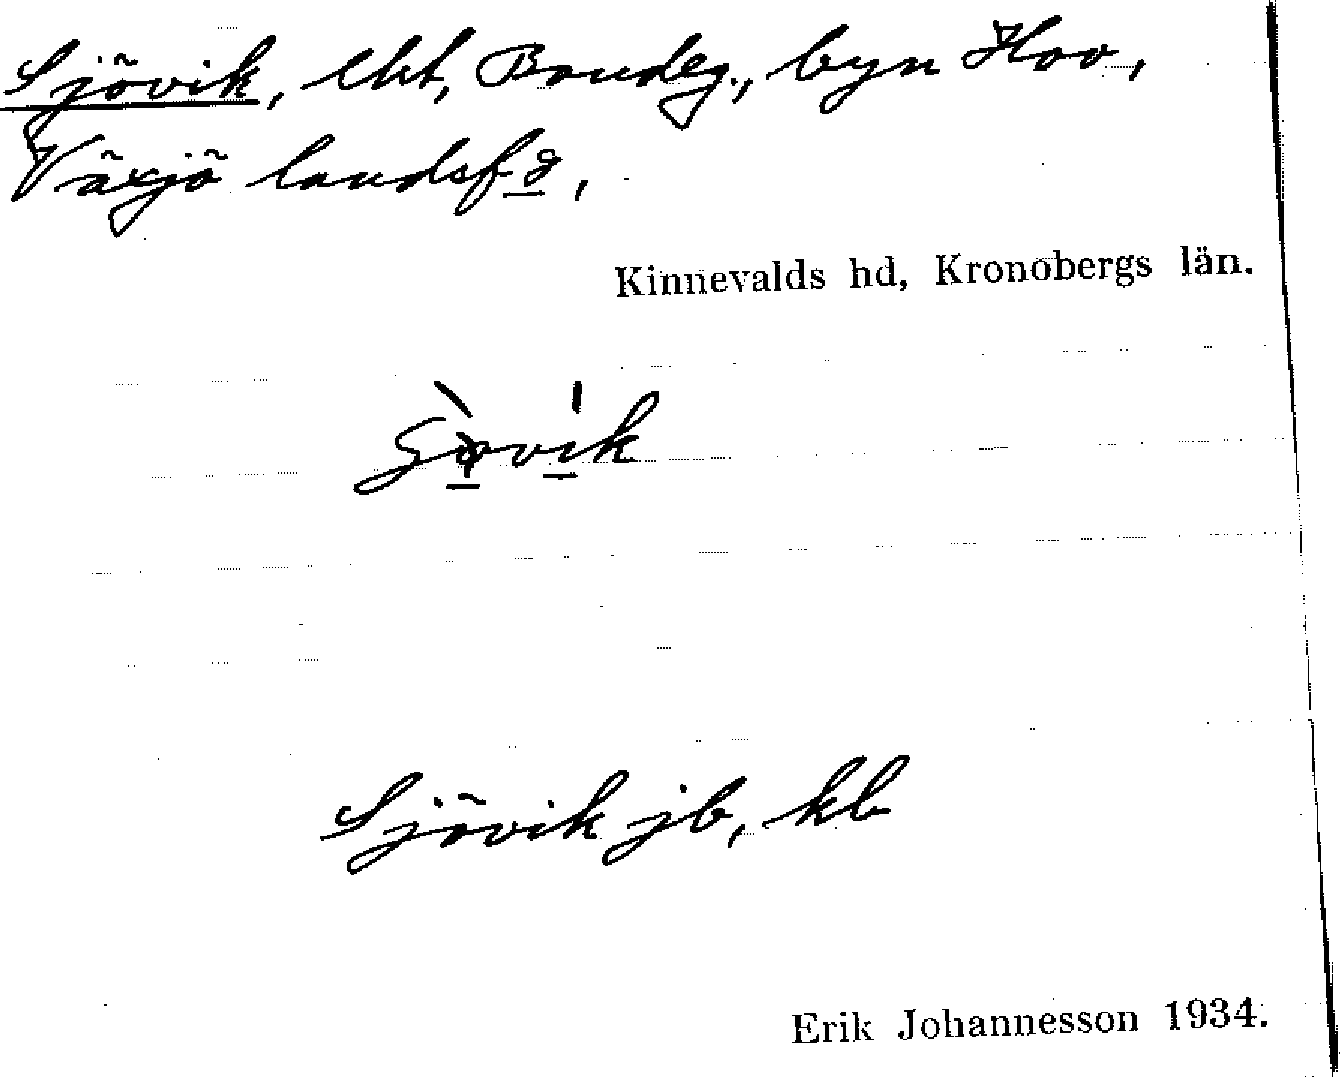 Sjövik, lht, Bondeg., byn Hov,
Växjö landsf-g,
Kinnevalds hd, Kronobergs län.
Sjövik jb, kb
Erik Johannesson 1934.